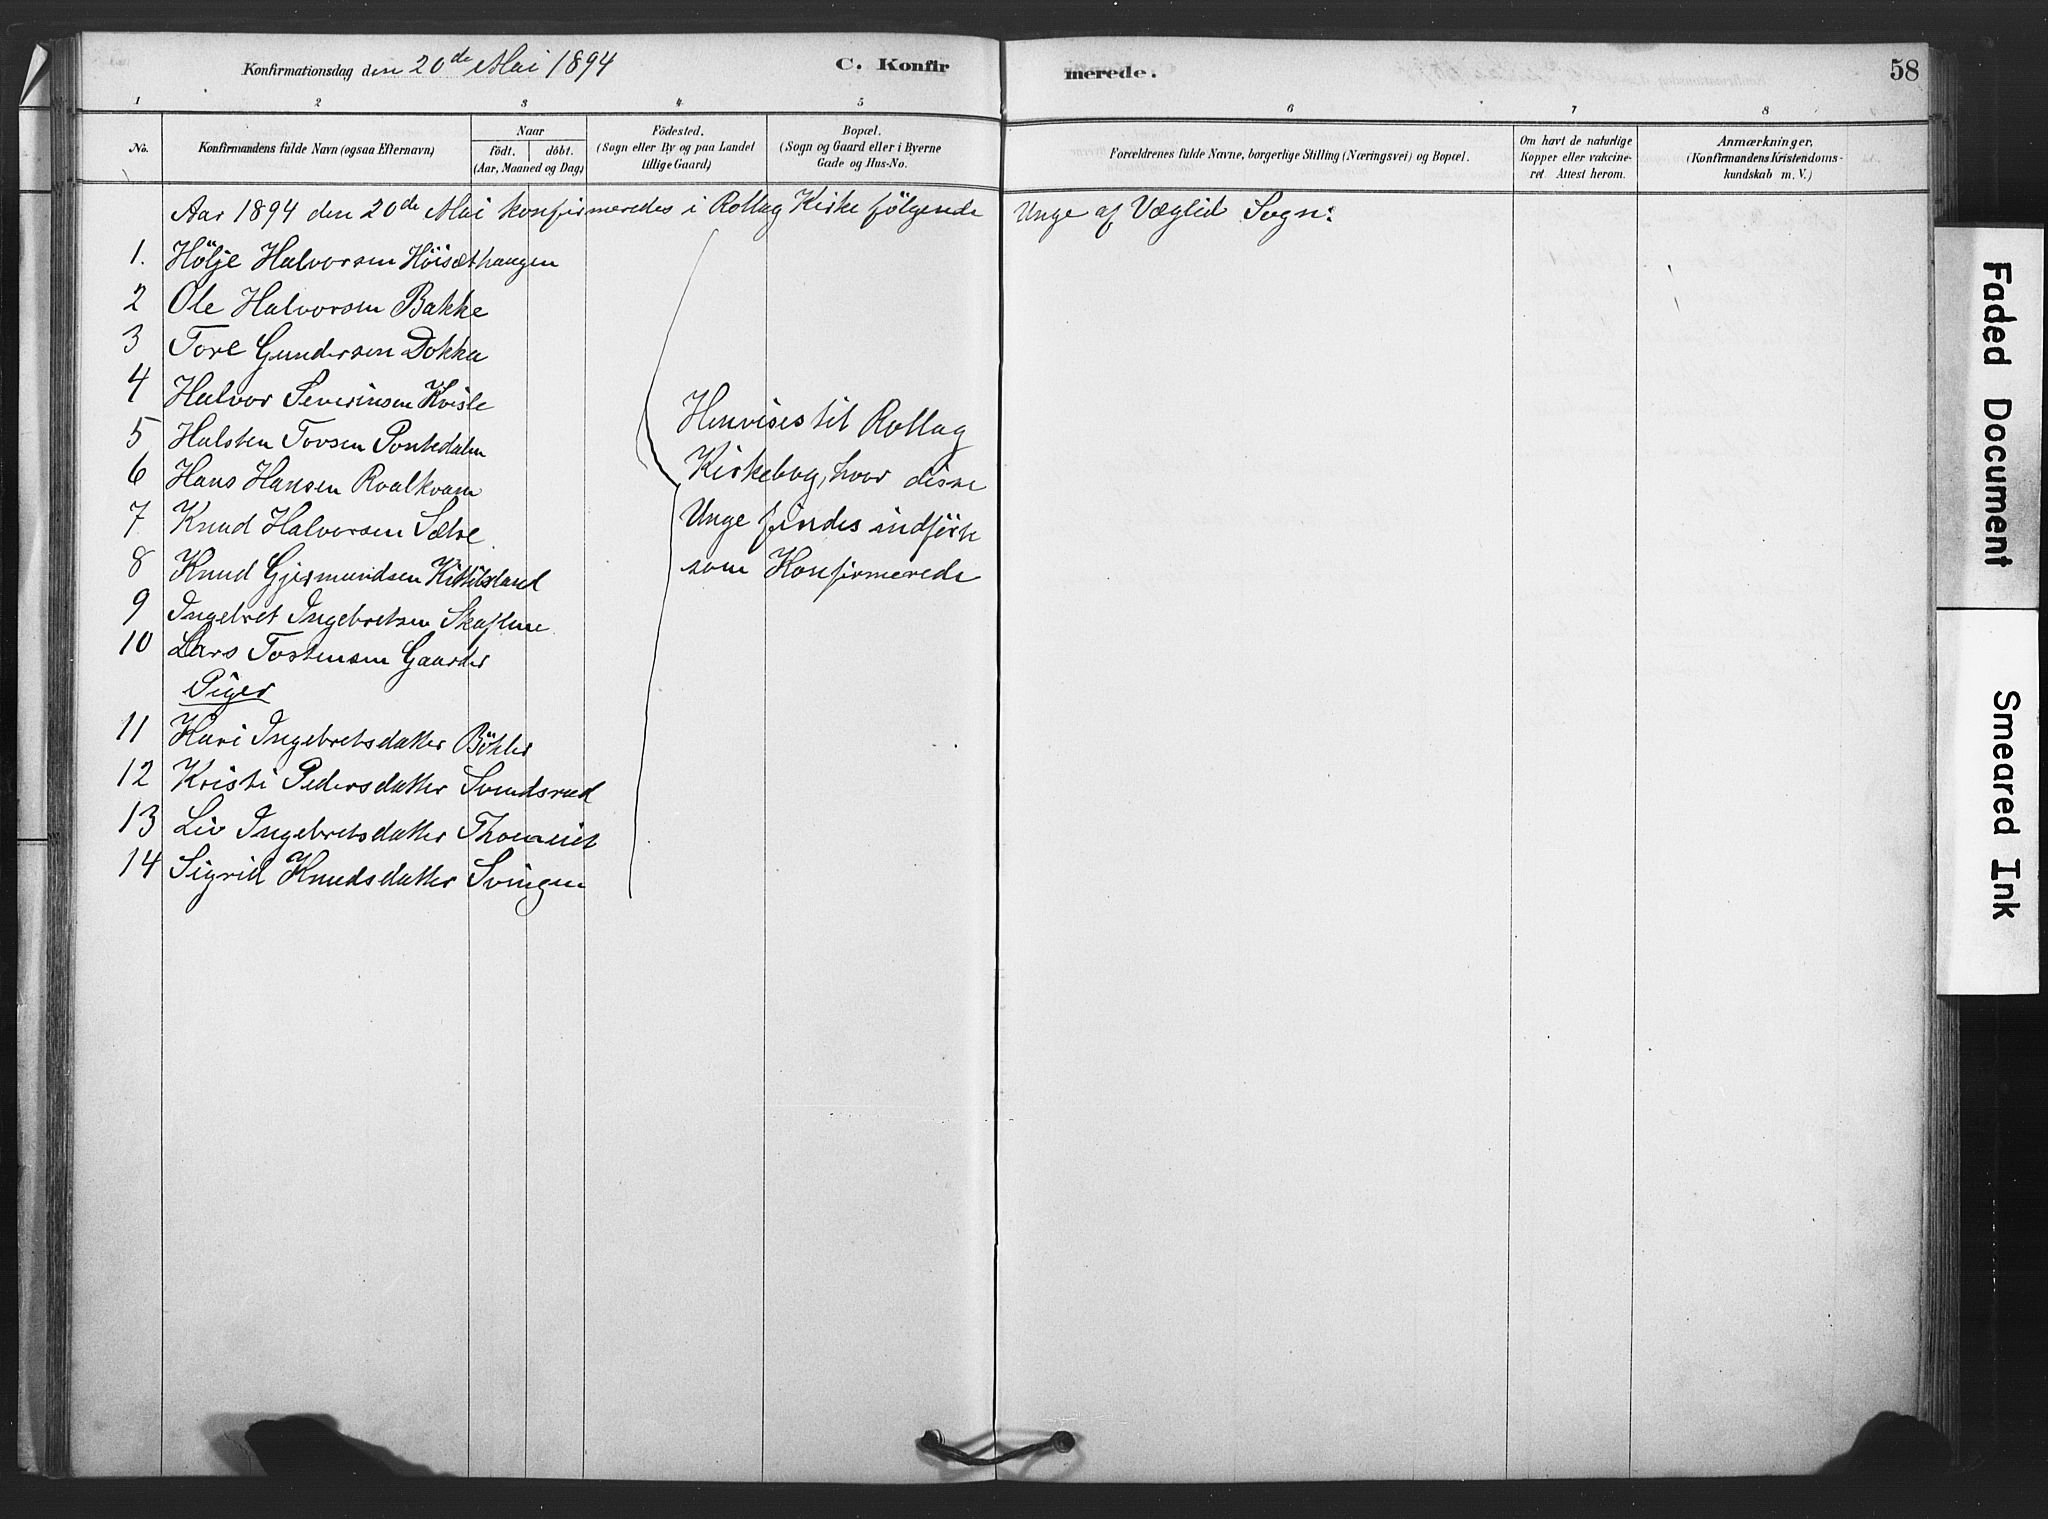 Konfirmationsdag den 20de Mai 1894
C. Konfirmerede.
58
1 2 3 4 5 6 7 8
No.
Konfirmandens fulde Navn (ogsaa Efternavn)
Naar
födt. döbt.
(Aar, Maaned og Dag)
Födested.
(Sogn eller By og paa Landet
tillige Gaard)
Bopæl.
(Sogn og Gaard eller i Byerne
Gade og Hus-No.
Forældrenes fulde Navne, borgerlige Stilling (Næringsvei) og Bopæl.
Om havt de naturlige
Kopper eller vakcine-
ret Attest herom.
Anmærkninger.
(Konfirmandens Kristendoms-
kundskab m. V.)
Aar 1894 den 20de Mai konfirmeredes i Rollag Kirke følgende Unge af Væglid Sogn:
1. Hölje Halvorsen Höisæthaugen
2 Ole Halvorsen Bakke
3 Tore Gundersen Dokka
4 Halvor Severinsen Kvisle
5 Halsten Tovsen Pontedalen
6 Hans Hansen Roalkvam
7 Knud Halvorsen Sælve
8 Knud Gjermundsen Kittilsland
9 Ingebret Ingebretsen
10 Lars Tostensen Gaarder
Piger
11 Kari Ingebretsdatter Böhler
12 Kristi Pedersdatter Svendsrud
13 Liv Ingebretsdatter
14 Sigrid Knudsdatter Svingen
Henvises til Rollag
Kirkebog, hvor disse
Unge findes indførte
som Konfirmerede
Faded Document
Smeared Ink